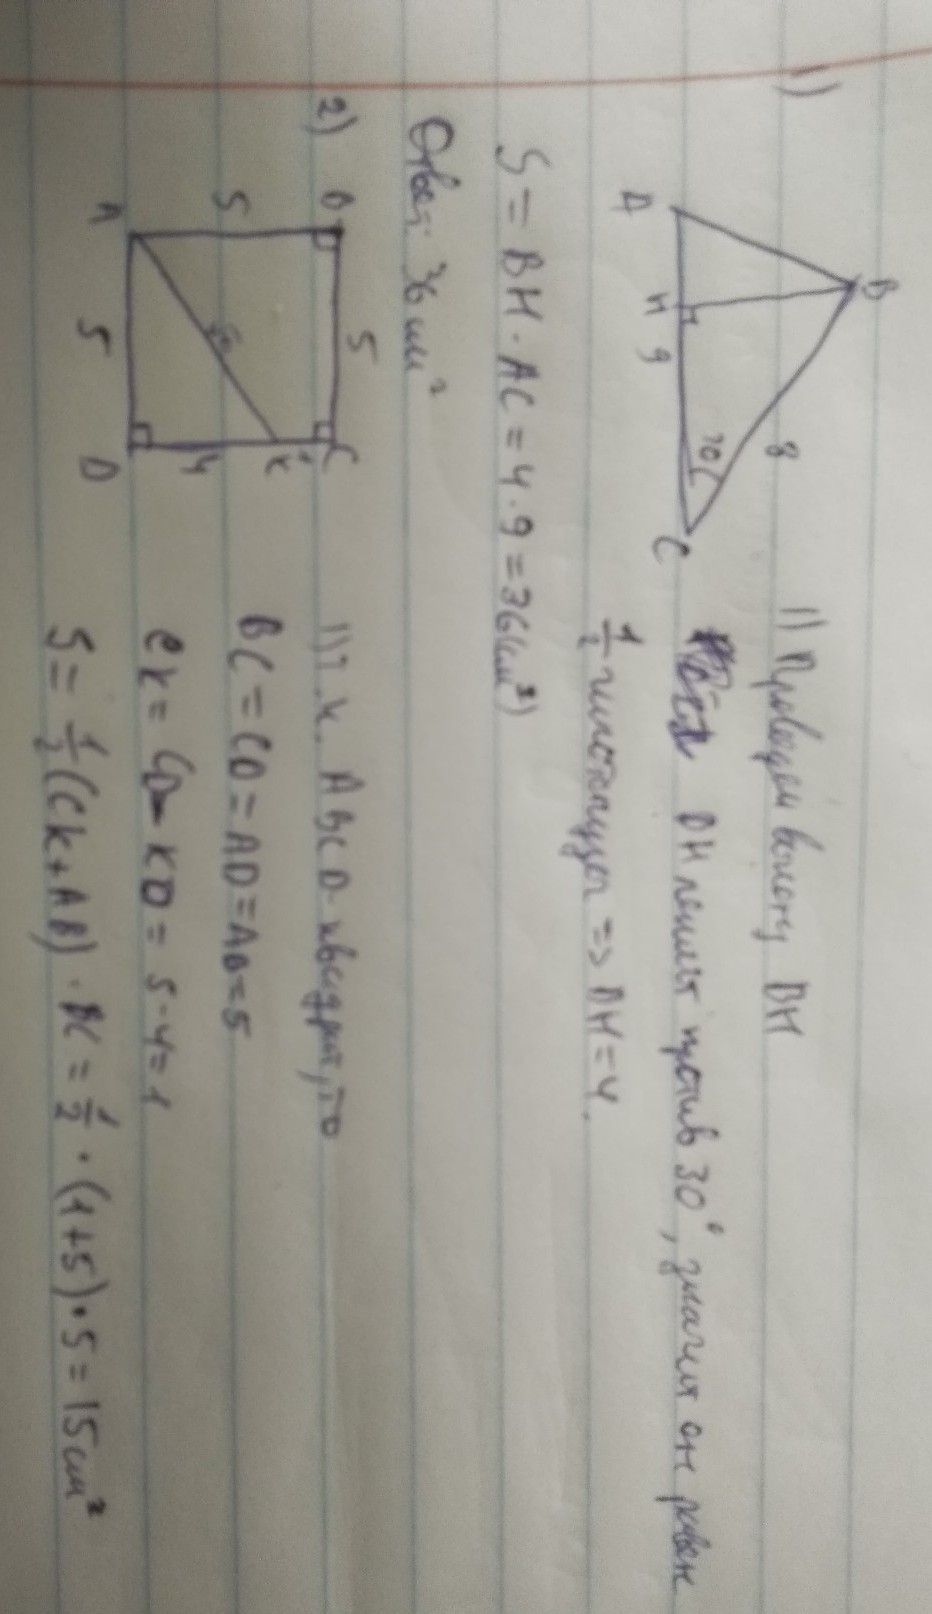 1)
B
8
30
A
H
9
C
1) Проведем высоту BH
BH лежит против 30°, значит он равен
1/2 гипотенузы => BH = 4.
S = BH · AC = 4 · 9 = 36 (см²)
Ответ: 36 см²
2)
B
5
C
K
5
4
A
5
D
1) т.к. ABCD - квадрат, то
BC = CD = AD = AB = 5
CK = CD - KD = 5 - 4 = 1
S = 1/2 (CK + AB) · BC = 1/2 · (1+5) · 5 = 15 см²